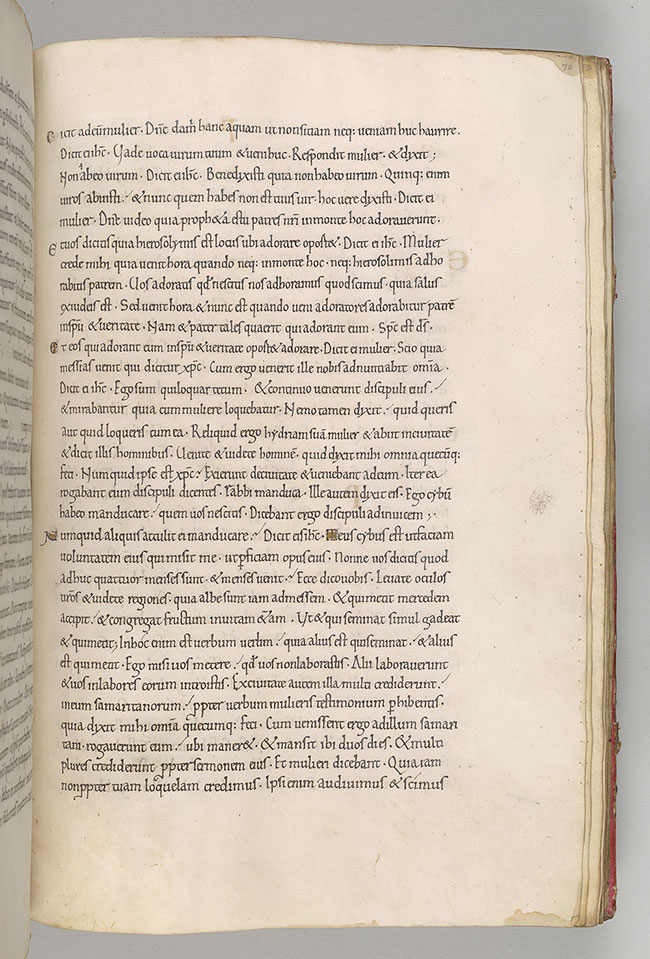 70
Dicit ad eū mulier. Dñe da m̄ hanc aquam ut non sitiam neq: veniam huc haurire.
Dicit ei ihc. Vade voca virum tuum & veni huc. Respondit mulier. & dixit;
Non abeo virum. Dicit ei ihc. Bene dixisti quia non habeo virum. Quinq: enim
viros abuisti. & nunc quem habes non est tuus vir. hoc vere dixisti. Dicit ei
mulier. Dñe video quia proph&a es tu patres nr̄i in monte hoc adoraverunt.
Et vos dicitis quia hierosolymis est locus ubi adorare oport&. Dicit ei ihc. Mulier
crede mihi quia venit hora quando neq: in monte hoc. neq: hierosolimis adho
rabitis patrem. Vos adoratis qd̄ nescitis nos adhoramus quod scimus. quia salus
ex iudeis est. Sed venit hora & nunc est quando veri adoratores adorabit patrē
in spū & veritate. Nam & pater tales quaerit qui adorant eum. Spc est ds̄.
Et eos qui adorant eum in spū & veritate oport& adorare. Dicit ei mulier. Scio quia
messias venit qui dicitur xpc. Cum ergo venerit ille nobis adnuntiabit omīa.
Dicit ei ihc. Ego sum qui loquar tecum. & continuo venerunt discipuli eius.
& mirabantur quia cum muliere loquebatur. Nemo tamen dixit. quid queris
aut quid loqueris cum ea. Reliquid ergo hydriam suā mulier & abiit in civitatē
& dicit illis hominibus. Venite & videte hominē. quid dixit mihi omnia quecūq:
feci. Numquid ipse est xpc. Exierunt de civitate & veniebant ad eum. Iterea
rogabant eum discipuli dicentes. Rabbi manduca. Ille autem dixit eis. Ego cybū
habeo manducare. quem vos nescitis. Dicebant ergo discipuli ad invicem;
Numquid aliquis attulit ei manducare. Dicit eis ihc. Meus cybus est ut faciam
voluntatem eius qui misit me. ut pficiam opus eius. Nonne vos dicitis quod
adhuc quattuor menses sunt. & menses venit. Ecce dico vobis. Levate oculos
vr̄os & videte regiones. quia albe sunt iam ad messem. & qui metit mercedem
accipit. & congregat fructum in vitam &ām. Ut & qui seminat simul gadeat
& qui metit; In hoc enim est verbum verum. quia alius est qui seminat. & alius
est qui metit. Ego misi vos metere. qd̄ vos non laborastis. Alii laboraverunt
& vos in labores eorum introistis. Ex civitate autem illa multi crediderunt.
in eum samaritanorum. ppter verbum mulieris testimonium phibentis.
quia dixit mihi omīa quecumq: feci. Cum venissent ergo ad illum samari
tani. rogaverunt eum. ubi maner&. & mansit ibi duos dies. & multi
plures crediderunt ppter sermonem eius. Et mulieri dicebant. Quia iam
non ppter tuam loquelam credimus. Ipsi enim audivimus & scimus